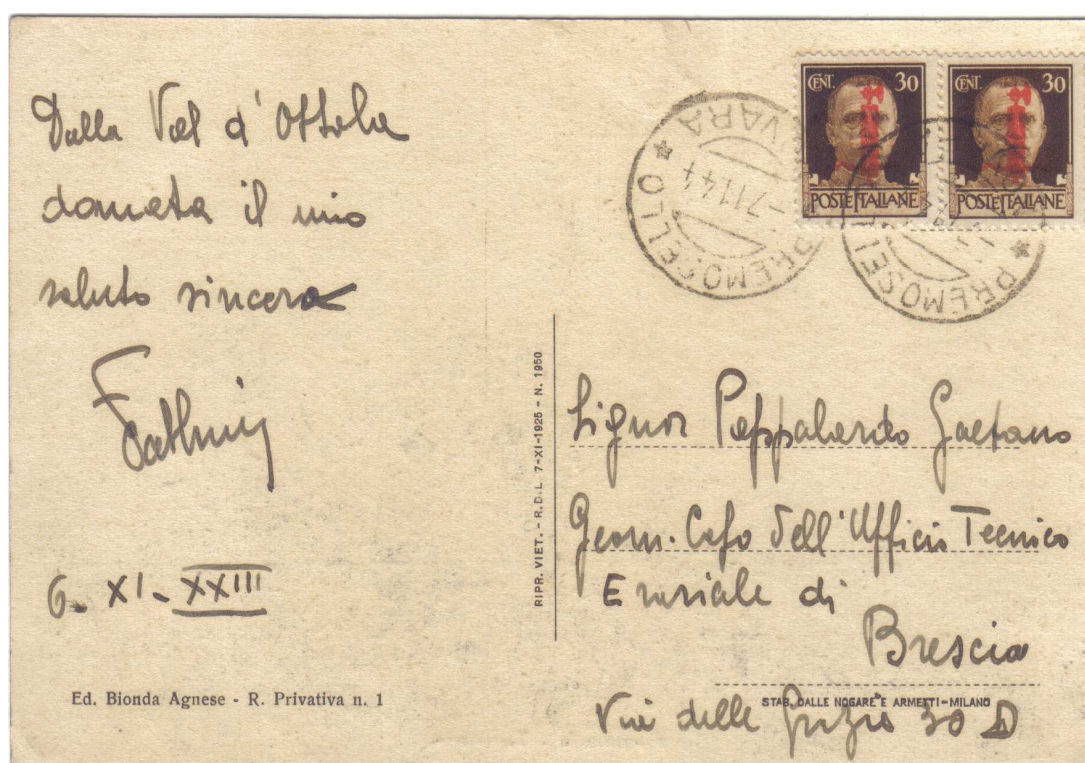 Dalla Val d'Ossola
domata il mio
saluto sincero
6. XI - XXIII
Ed. Bionda Agnese - R. Privativa n. 1
RIPR. VIET. - R.D.L. 7-XI-1925 - N. 1950
CENT. 30
POSTE ITALIANE
CENT. 30
POSTE ITALIANE
PREMOSELLO * VARA *
-7.11.44
PREMOSEL *
Signor Pappalardo Gaetano
Geom. Capo dell'Ufficio Tecnico
Erariale di
Brescia
STAB. DALLE NOGARE E ARMETTI-MILANO
Via delle Grazie 30 D